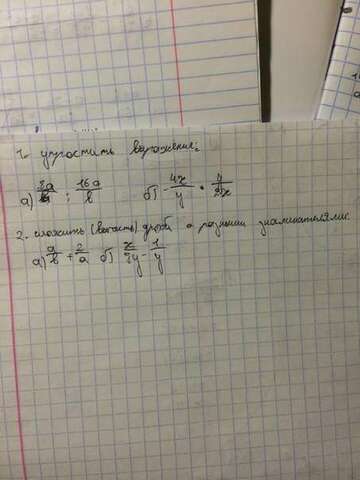 1. упростить выражение:
а) 8a/b : 16a/b б) - 4x/y • 4/2x
2. сложить (вычесть) дроби с разными знаменателями.
а) a/b + 2/a б) x/3y - 1/y